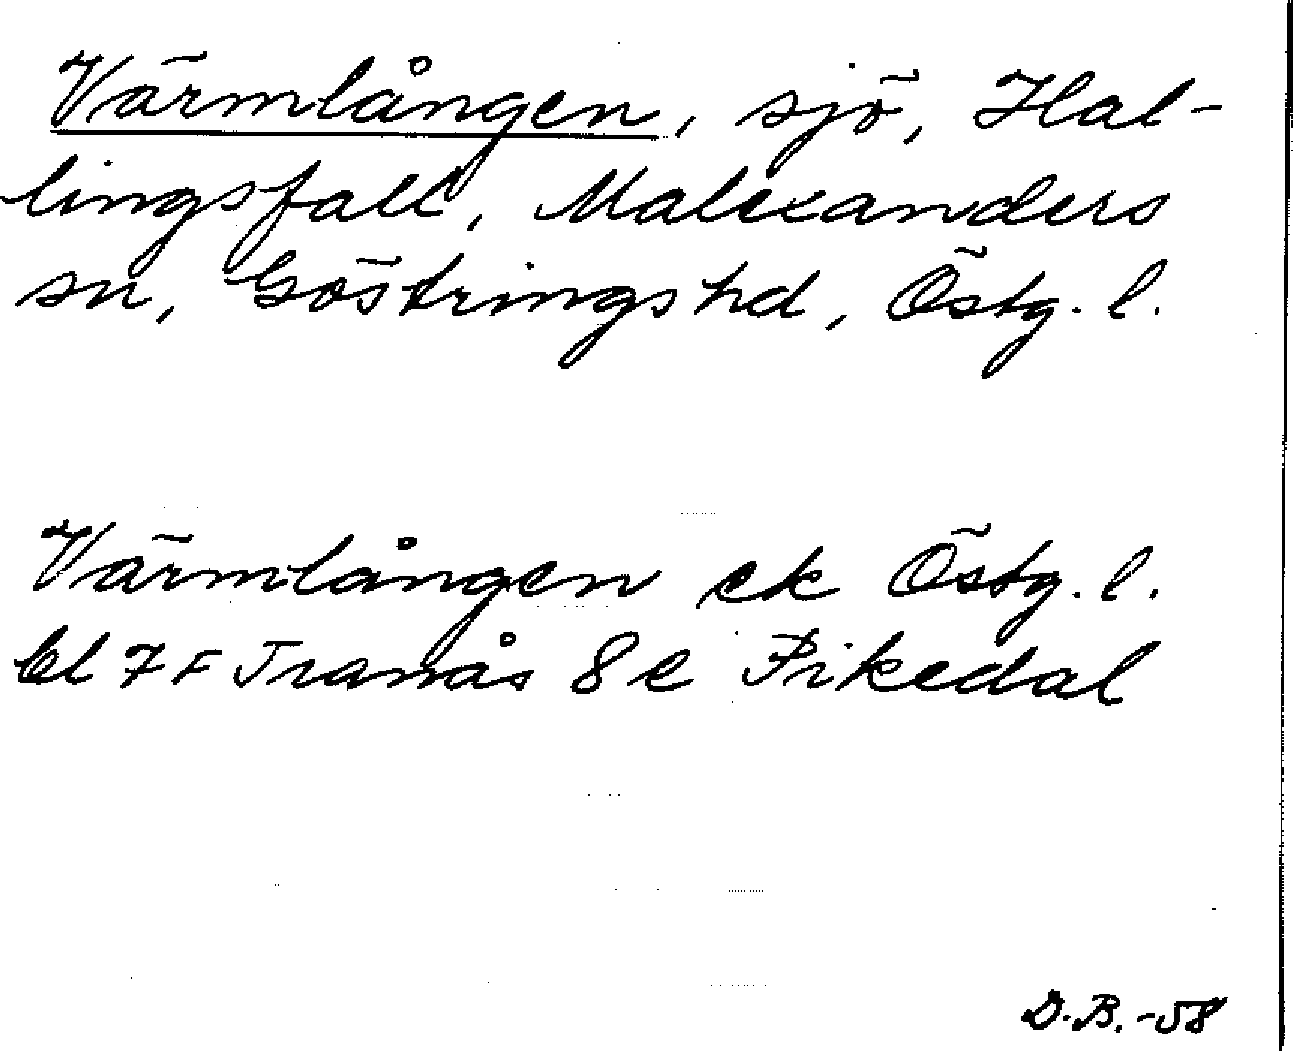 Värmlången, sjö, Hal-
lingsfall, Malexanders
sn, Göstrings hd, Östg. l.
Värmlången ek Östg. l.
bl 7F Tranås 8e Pikedal
D.B. -58